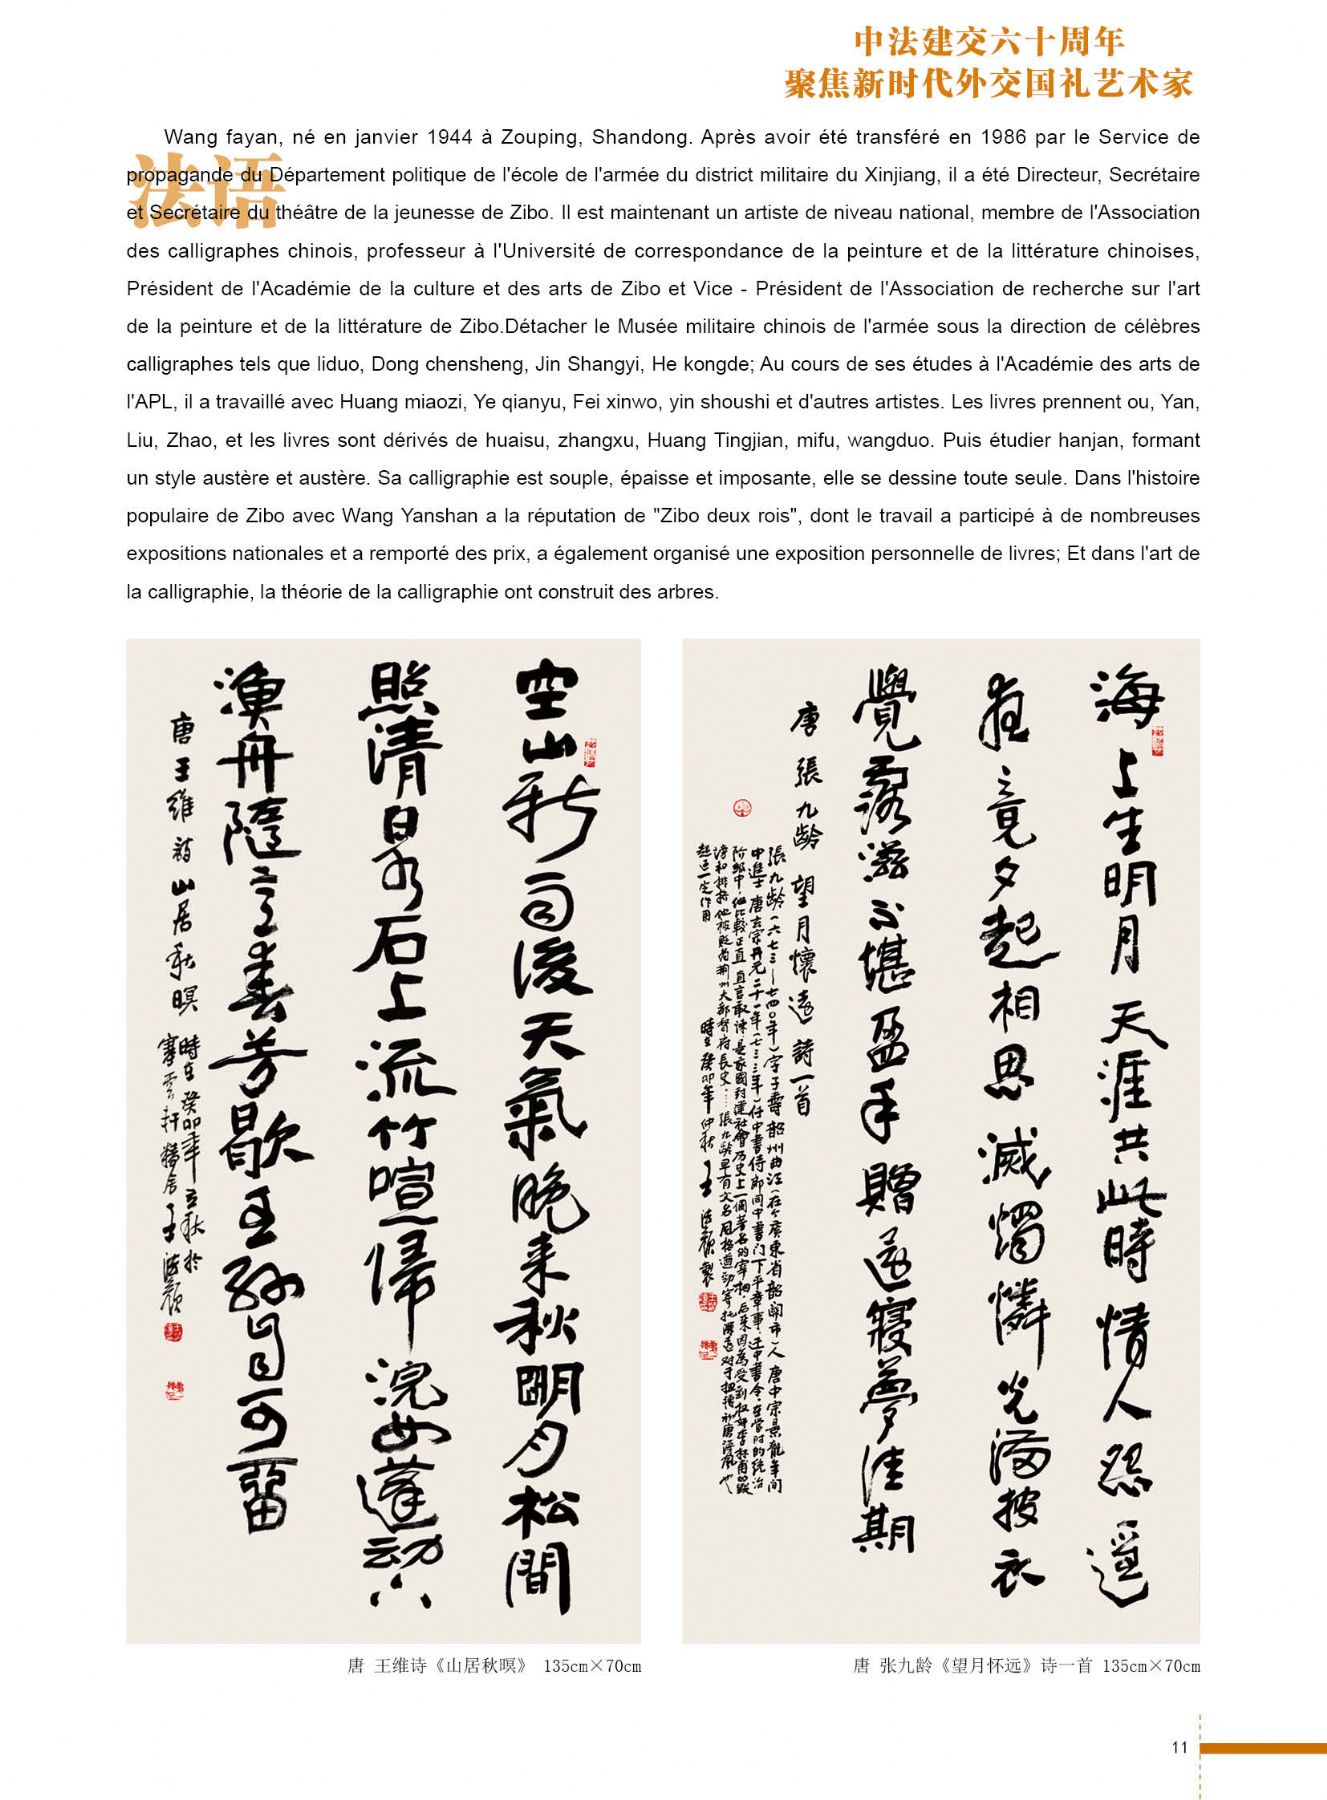 中法建交六十周年
聚焦新时代外交国礼艺术家
法语
Wang fayan, né en janvier 1944 à Zouping, Shandong. Après avoir été transféré en 1986 par le Service de
propagande du Département politique de l'école de l'armée du district militaire du Xinjiang, il a été Directeur, Secrétaire
et Secrétaire du théâtre de la jeunesse de Zibo. Il est maintenant un artiste de niveau national, membre de l'Association
des calligraphes chinois, professeur à l'Université de correspondance de la peinture et de la littérature chinoises,
Président de l'Académie de la culture et des arts de Zibo et Vice - Président de l'Association de recherche sur l'art
de la peinture et de la littérature de Zibo.Détacher le Musée militaire chinois de l'armée sous la direction de célèbres
calligraphes tels que liduo, Dong chensheng, Jin Shangyi, He kongde; Au cours de ses études à l'Académie des arts de
l'APL, il a travaillé avec Huang miaozi, Ye qianyu, Fei xinwo, yin shoushi et d'autres artistes. Les livres prennent ou, Yan,
Liu, Zhao, et les livres sont dérivés de huaisu, zhangxu, Huang Tingjian, mifu, wangduo. Puis étudier hanjan, formant
un style austère et austère. Sa calligraphie est souple, épaisse et imposante, elle se dessine toute seule. Dans l'histoire
populaire de Zibo avec Wang Yanshan a la réputation de "Zibo deux rois", dont le travail a participé à de nombreuses
expositions nationales et a remporté des prix, a également organisé une exposition personnelle de livres; Et dans l'art de
la calligraphie, la théorie de la calligraphie ont construit des arbres.
空山新雨後天氣晚来秋明月松間
照清泉石上流竹喧歸浣女蓮动下
漁舟隨意春芳歇王孫自可留
唐王維詩山居秋暝
時在癸卯年立秋於
寒雲軒精舍王法顏
海上生明月天涯共此時情人怨遥
夜竟夕起相思滅燭憐光滿披衣
覺露滋不堪盈手贈還寢夢佳期
唐張九齡望月懷遠詩一首
張九龄(六七三—七四〇年)字子壽韶州曲江(在今廣東省韶關市)人唐中宗景龍年间
中進士唐玄宗开元二十一年(七三三年)任中書侍郎同中書门下平章事.迁中書令.在当时的统治
阶级中,他比較正直直言敢諫是我國封建社會历史上一個著名的宰相.后来因為受到权奸李林甫的毀
谤和排挤他被贬為荆州大都督府長史……張九龄早有文名风格遒劲寄托深远对于扭轉初唐淫風也
起过一定作用
時在癸卯年仲秋王法顏製
唐 王维诗《山居秋暝》 135cm×70cm
唐 张九龄《望月怀远》诗一首 135cm×70cm
11